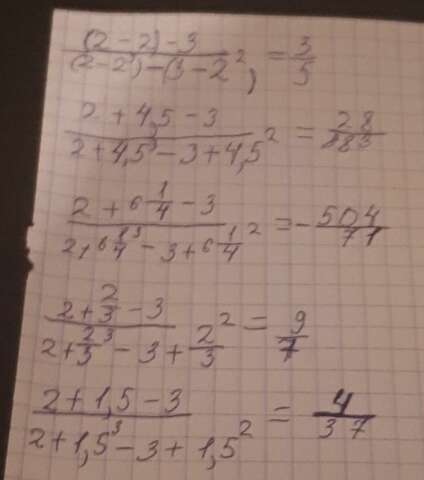 (2-2)-3
(2-2³)-(3-2², = 3/5
2+4,5-3
2+4,5³-3+4,5² = 28/883
2+6 1/4-3
2+6 1/4³-3+6 1/4² = -504/71
2+2/3-3
2+2/3³-3+2/3² = 9/7
2+1,5-3
2+1,5³-3+1,5² = 4/37